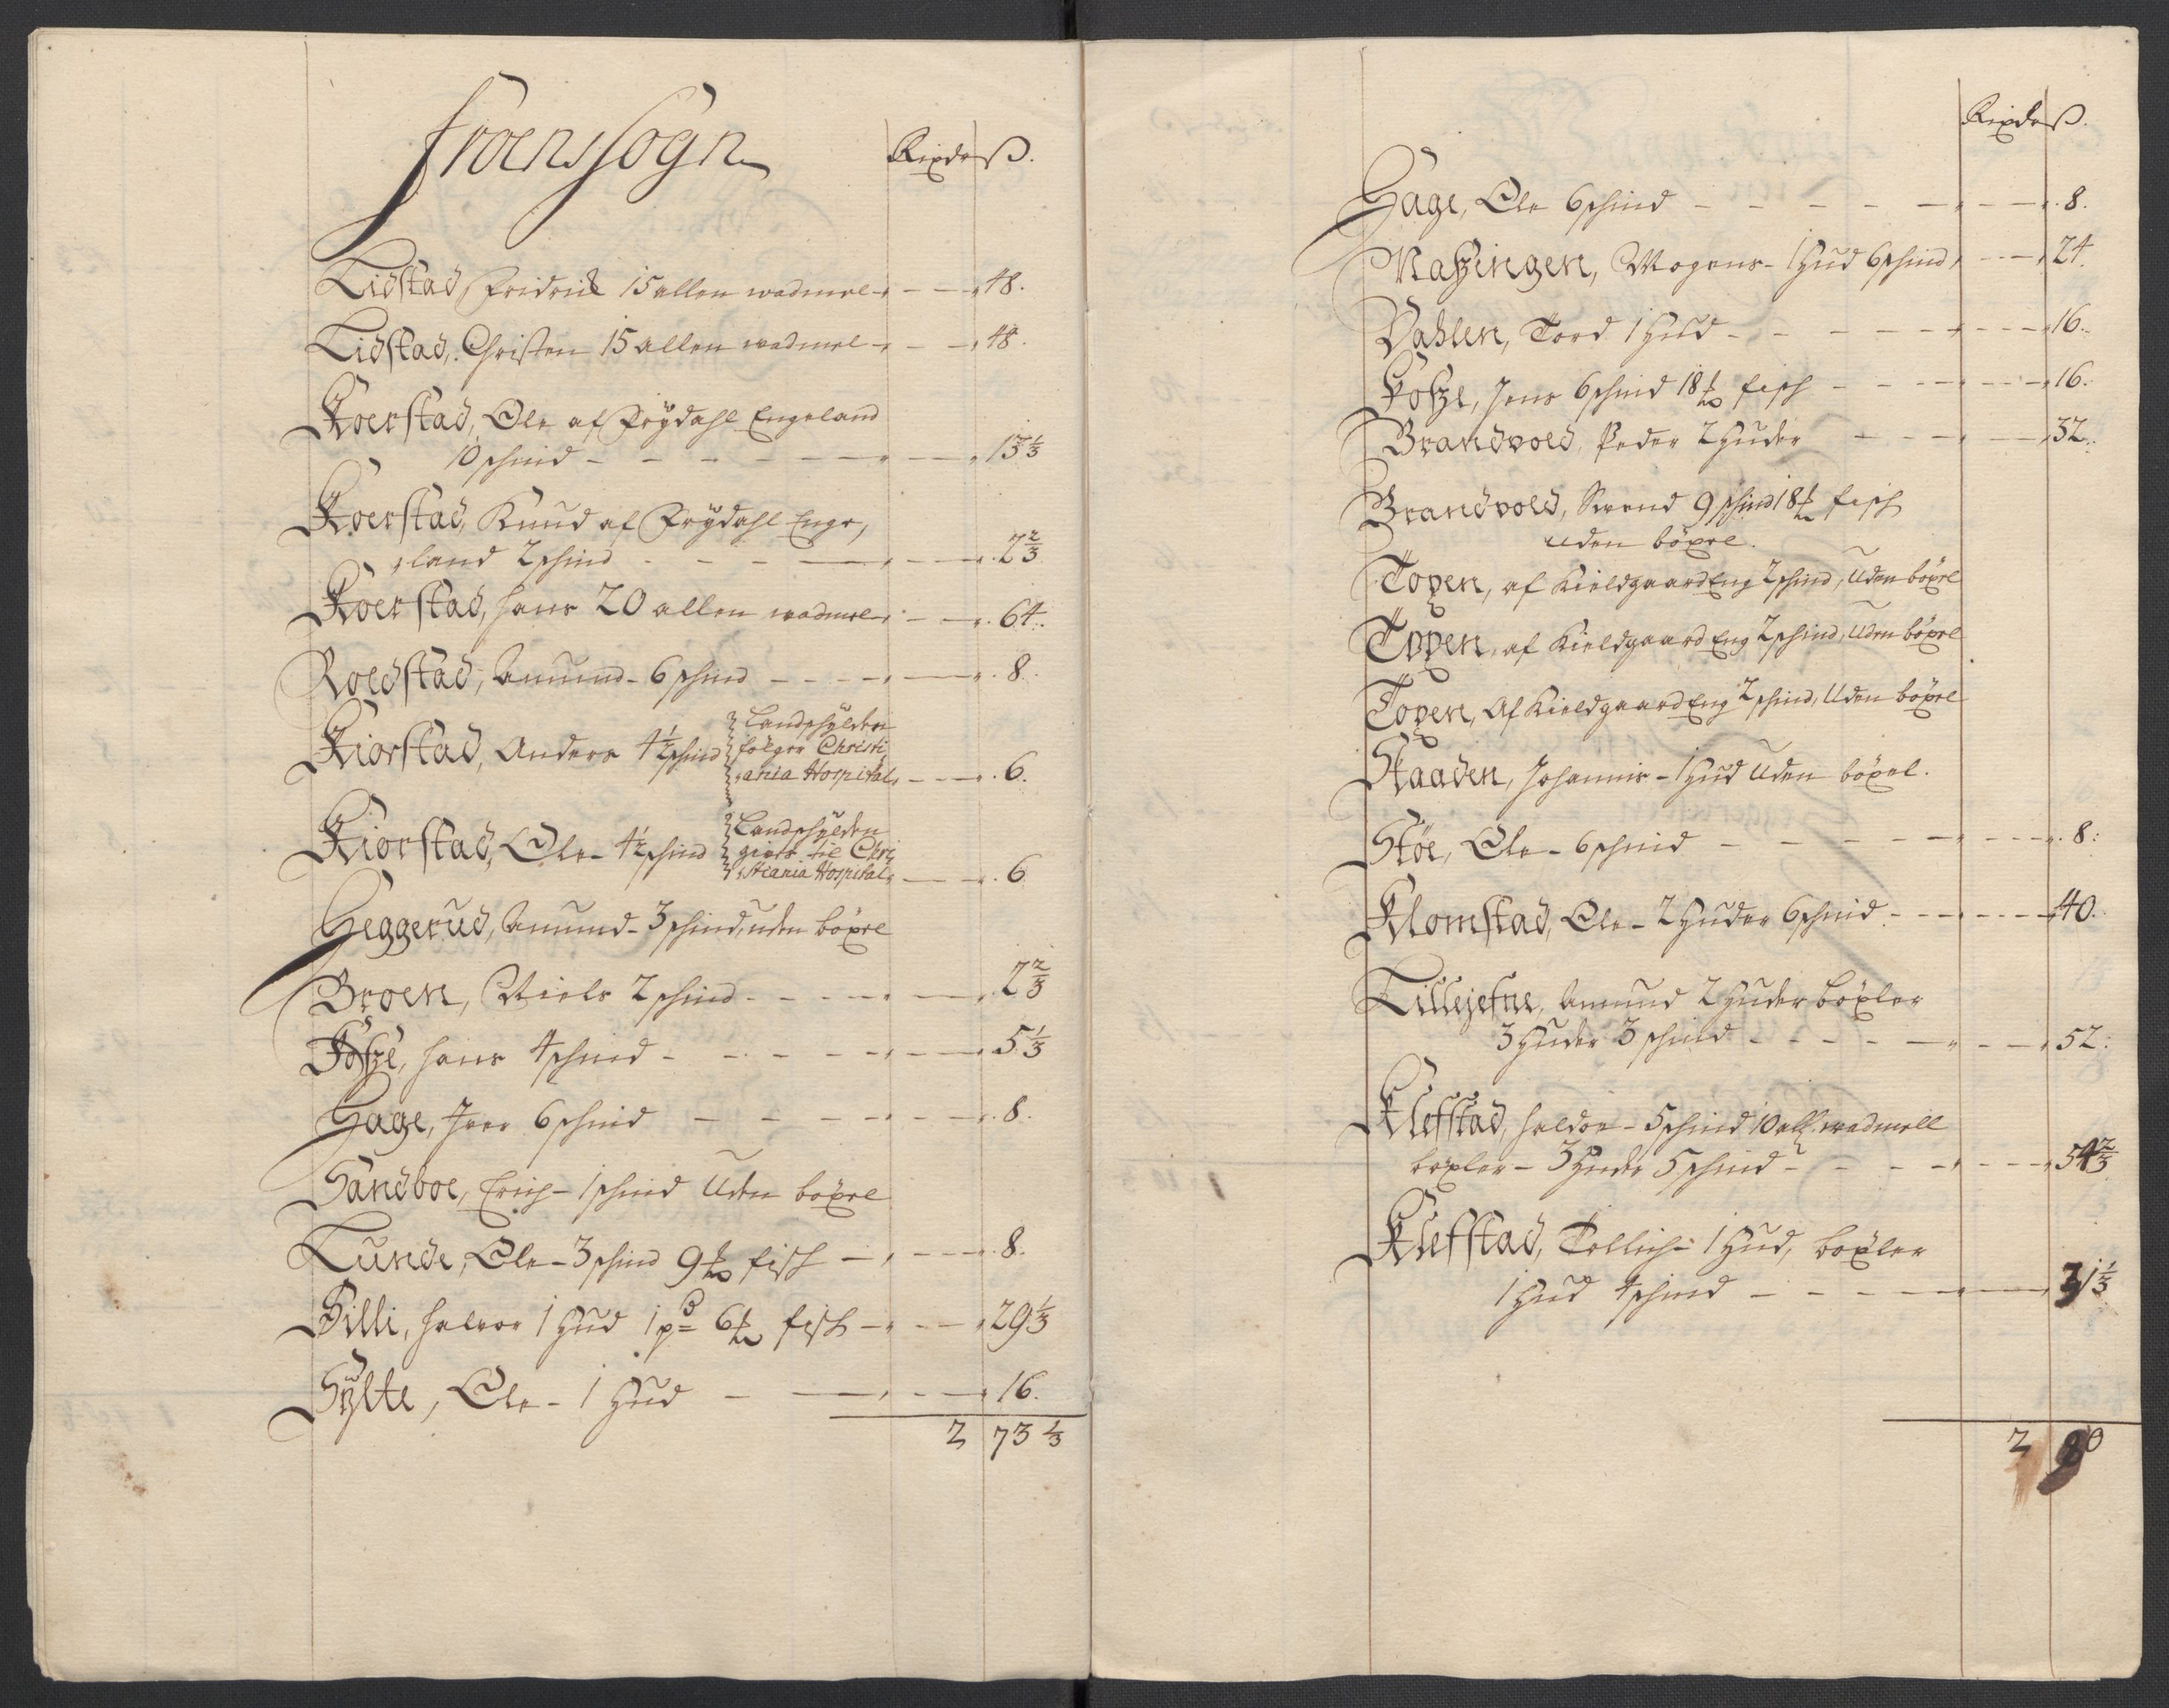 Froens Sogn
Rixdr ß.
Lidstad Fridrik 15 allen wadmel 48.
Lidstad, Christen 15 allen wadmel 48.
Koerstad, Ole af Frÿdahl Engeland
10 schind 13 1/3
Koerstad, Knud af Frÿdahl Enge,
land 2 schind 2 2/3
Koerstad, Hans 20 allen wadmel 64.
Roldstad, Amund - 6 schind 8.
Kiorstad, Anders 4 1/2 schind Landschÿlden
følger Christi
ania Hospital 6.
Kiorstad, Ole - 4 1/2 schind Landschÿlden
giets til Chri
stiania Hospital 6
Heggerud, Amund - 3 schind, uden böxel
Broen, Niels 2 schind 2 2/3
Foszе, Hans 4 schind 5 1/3
Hage, Iver 6 schind 8.
Sandboe, Erich - 1 schind Uden böxel
Lunde, Ole - 3 schind 9 ℔ fisch 8.
Silli, Halvor 1 Hud 1 pd 6 ℔ fisch 29 1/3
Sÿlte, Ole - 1 Hud 16.
2 73 1/3
Rixdr ß.
Hage, Ole 6 schind 8.
Maszingen, Mogens - 1 Hud 6 schind 24.
Dahlen, Tord 1 Hud 16.
Fosze, Jens 6 schind 18 ℔ fisch 16.
Brandvold, Peder 2 Huder 32.
Brandvold, Svend 9 schind 18 ℔ fisch
uden böxel.
Toven, af Kieldgaard Eng 2 schind, Uden böxel
Toven, af Kieldgaard Eng 2 schind, Uden böxel
Toven, Af Kieldgaard Eng 2 schind, Uden böxel
Staaden, Johannis - 1 Hud Uden böxel.
Stöe, Ole - 6 schind 8.
Klomstad, Ole - 2 Huder 6 schind 40.
Lillejefne, Amund 2 Huder böxler
3 Huder 3 schind 52.
Klefstad, Haldor - 5 schind 10 all. wadmell
böxler - 3 Huder 5 schind 54 2/3
Klefstad, Tollich - 1 Hud, böxler
1 Hud 4 schind 31 1/3
2 90